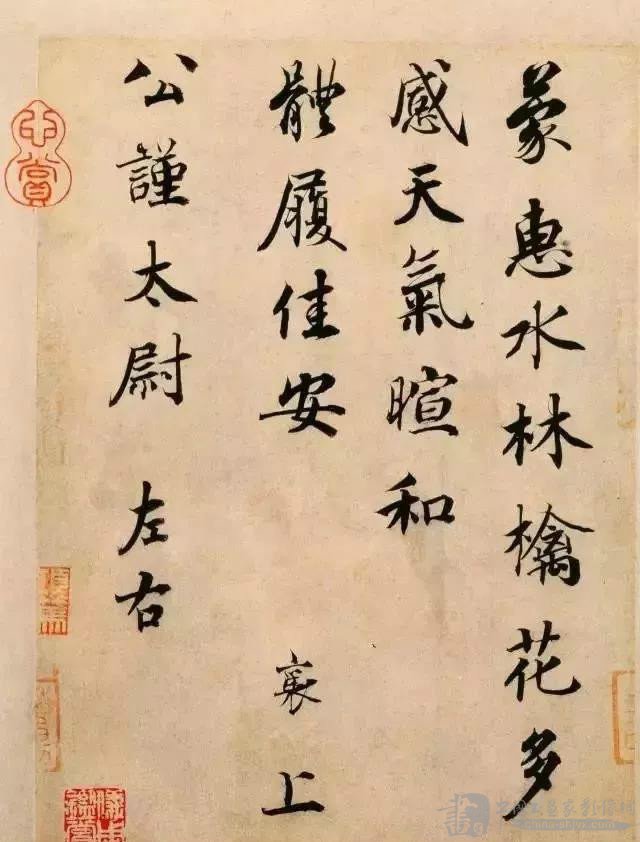 蒙惠水林檎花多
感天氣暄和
體履佳安 襄上
公謹太尉 左右
china-shjyx.com